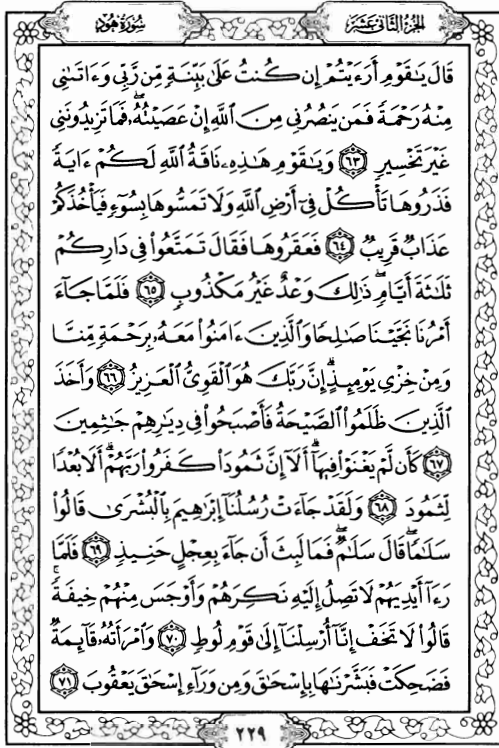 الجزء الثاني عشر
سورة هود
قَالَ يَٰقَوۡمِ أَرَءَيۡتُمۡ إِن كُنتُ عَلَىٰ بَيِّنَةٖ مِّن رَّبِّي وَءَاتَىٰنِي
مِنۡهُ رَحۡمَةٗ فَمَن يَنصُرُنِي مِنَ ٱللَّهِ إِنۡ عَصَيۡتُهُۥۖ فَمَا تَزِيدُونَنِي
غَيۡرَ تَخۡسِيرٖ ٦٣ وَيَٰقَوۡمِ هَٰذِهِۦ نَاقَةُ ٱللَّهِ لَكُمۡ ءَايَةٗ
فَذَرُوهَا تَأۡكُلۡ فِيٓ أَرۡضِ ٱللَّهِ وَلَا تَمَسُّوهَا بِسُوٓءٖ فَيَأۡخُذَكُمۡ
عَذَابٞ قَرِيبٞ ٦٤ فَعَقَرُوهَا فَقَالَ تَمَتَّعُواْ فِي دَارِكُمۡ
ثَلَٰثَةَ أَيَّامٖۖ ذَٰلِكَ وَعۡدٌ غَيۡرُ مَكۡذُوبٖ ٦٥ فَلَمَّا جَآءَ
أَمۡرُنَا نَجَّيۡنَا صَٰلِحٗا وَٱلَّذِينَ ءَامَنُواْ مَعَهُۥ بِرَحۡمَةٖ مِّنَّا
وَمِنۡ خِزۡيِ يَوۡمِئِذٍۚ إِنَّ رَبَّكَ هُوَ ٱلۡقَوِيُّ ٱلۡعَزِيزُ ٦٦ وَأَخَذَ
ٱلَّذِينَ ظَلَمُواْ ٱلصَّيۡحَةُ فَأَصۡبَحُواْ فِي دِيَٰرِهِمۡ جَٰثِمِينَ
٦٧ كَأَن لَّمۡ يَغۡنَوۡاْ فِيهَآۗ أَلَآ إِنَّ ثَمُودَاْ كَفَرُواْ رَبَّهُمۡۗ أَلَا بُعۡدٗا
لِّثَمُودَ ٦٨ وَلَقَدۡ جَآءَتۡ رُسُلُنَآ إِبۡرَٰهِيمَ بِٱلۡبُشۡرَىٰ قَالُواْ
سَلَٰمٗاۖ قَالَ سَلَٰمٞۖ فَمَا لَبِثَ أَن جَآءَ بِعِجۡلٍ حَنِيذٖ ٦٩ فَلَمَّا
رَءَآ أَيۡدِيَهُمۡ لَا تَصِلُ إِلَيۡهِ نَكِرَهُمۡ وَأَوۡجَسَ مِنۡهُمۡ خِيفَةٗۚ
قَالُواْ لَا تَخَفۡ إِنَّآ أُرۡسِلۡنَآ إِلَىٰ قَوۡمِ لُوطٖ ٧٠ وَٱمۡرَأَتُهُۥ قَآئِمَةٞ
فَضَحِكَتۡ فَبَشَّرۡنَٰهَا بِإِسۡحَٰقَ وَمِن وَرَآءِ إِسۡحَٰقَ يَعۡقُوبَ ٧١
٢٢٩